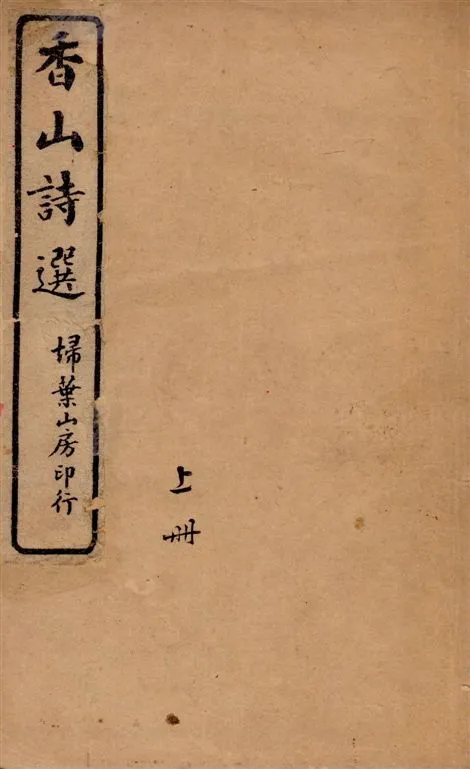 香山詩選
掃葉山房印行
上冊